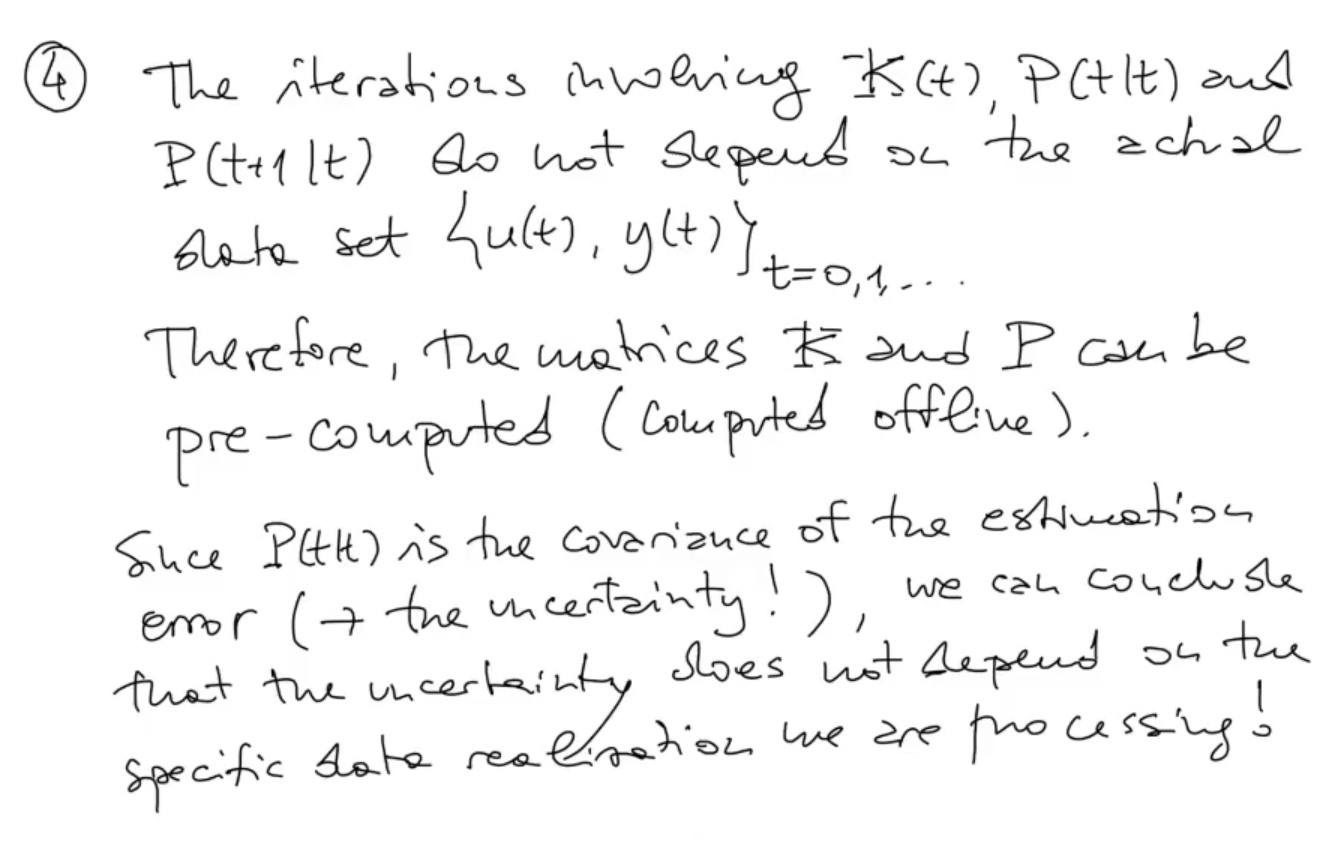 ④ The iterations involving K(t), P(t|t) and
P(t+1|t) do not depend on the actual
data set {u(t), y(t)}t=0,1,...
Therefore, the matrices K and P can be
pre-computed (computed offline).
Since P(t|t) is the covariance of the estimation
error (→ the uncertainty!), we can conclude
that the uncertainty does not depend on the
specific data realization we are processing!